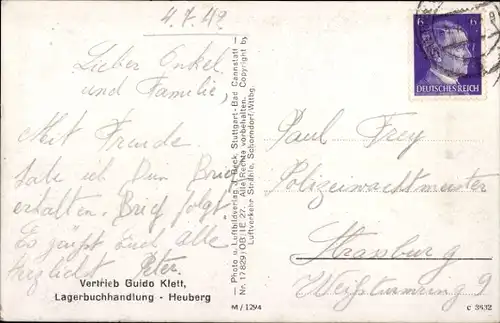 4.7.42
Lieber Onkel
und Familie,
Mit Freude
habe ich Dein Brief
erhalten. Brief folgt
Es grüßt Euch alle
herzlich Peter.
Vertrieb Guido Klett,
Lagerbuchhandlung - Heuberg
Photo u. Luftbildverlag J. Beck, Stuttgart-Bad Cannstatt
Nr. 17829 OB: I E 27. Alle Rechte vorbehalten. Copyright by
Luftverkehr Strähle, Schorndorf/Wttbg.
M/1294
6 6
DEUTSCHES REICH
Paul Frey
Polizeiwachtmeister
Strassburg
Weißturmring 9
C 3432